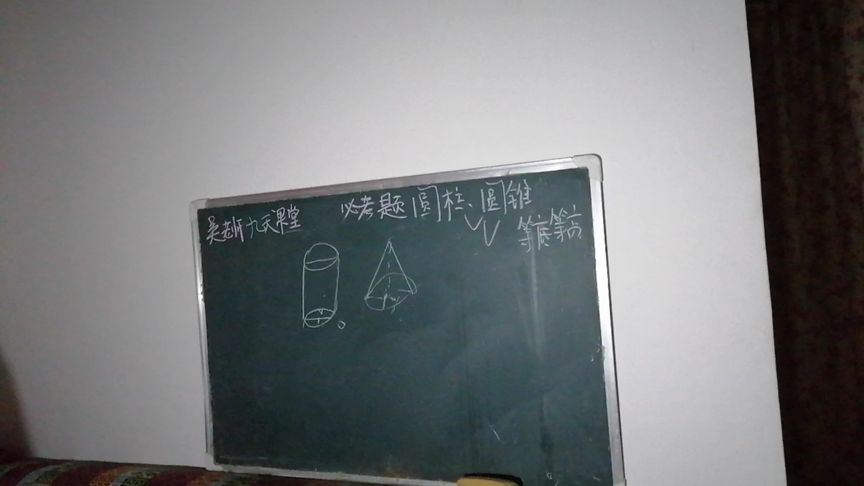 吴老师九天课堂
必考题圆柱、圆锥
等底等高